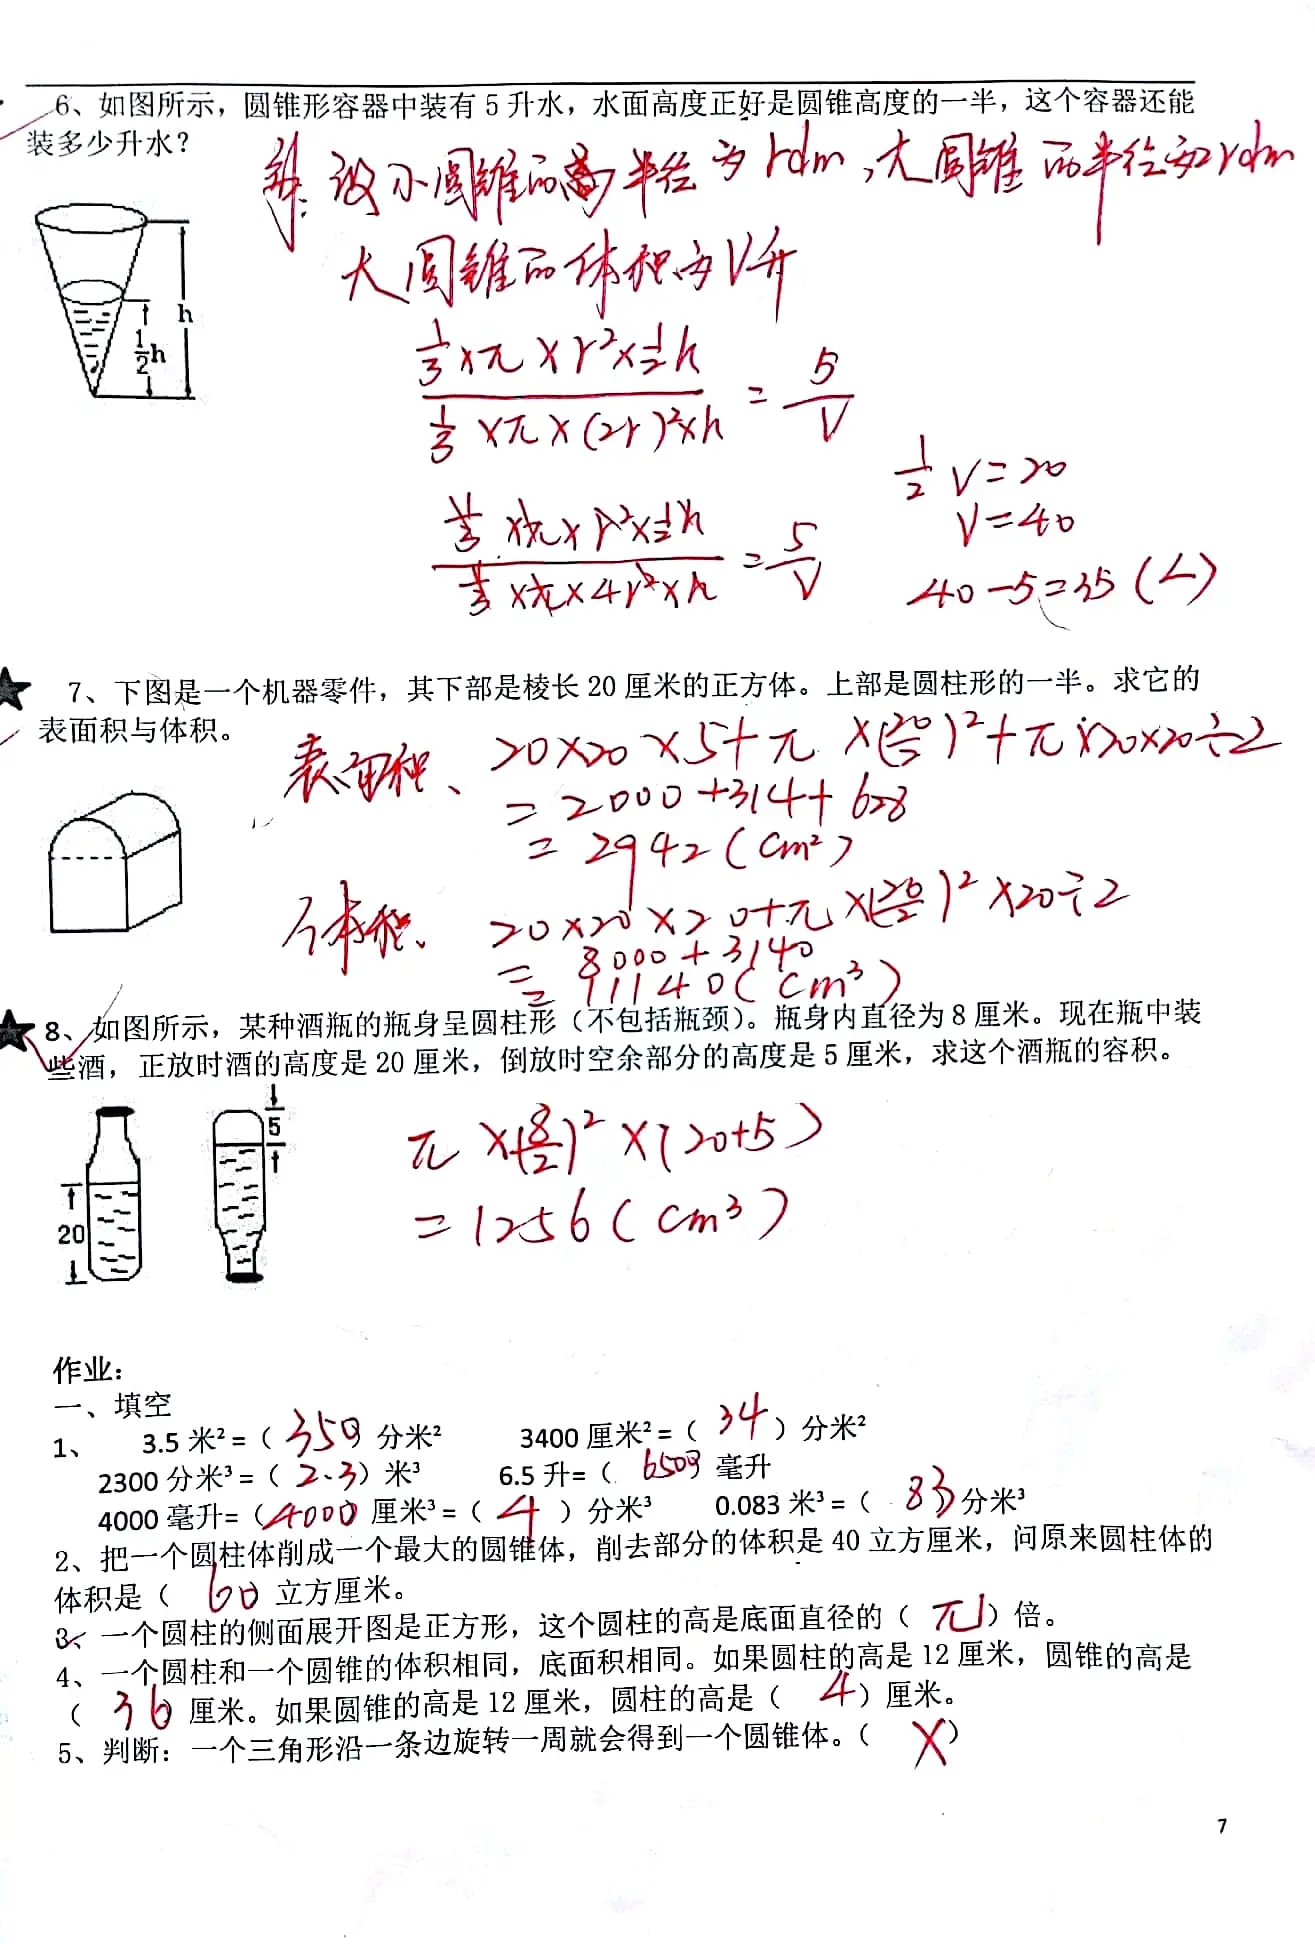 6、如图所示，圆锥形容器中装有5升水，水面高度正好是圆锥高度的一半，这个容器还能
装多少升水？
解：设小圆锥的半径为rdm，大圆锥的半径为2rdm
大圆锥的体积为V升
h
1/2 h
1/3×π×r²×1/2h / 1/3×π×(2r)²×h = 5/V
1/3×π×r²×1/2h / 1/3×π×4r²×h = 5/V
1/2 V=20
V=40
40-5=35(L)
★ 7、下图是一个机器零件，其下部是棱长20厘米的正方体。上部是圆柱形的一半。求它的
表面积与体积。
表面积、 20×20×5+π×(20/2)²+π×20×20÷2
=2000+314+628
=2942(cm²)
体积、 20×20×20+π×(20/2)²×20÷2
=8000+3140
=11140(cm³)
★ 8、如图所示，某种酒瓶的瓶身呈圆柱形（不包括瓶颈）。瓶身内直径为8厘米。现在瓶中装
些酒，正放时酒的高度是20厘米，倒放时空余部分的高度是5厘米，求这个酒瓶的容积。
20
5
π×(8/2)²×(20+5)
=1256(cm³)
作业：
一、填空
1、 3.5米²=（350）分米² 3400厘米²=（34）分米²
2300分米³=（2.3）米³ 6.5升=（6500）毫升
4000毫升=（4000）厘米³=（4）分米³ 0.083米³=（83）分米³
2、把一个圆柱体削成一个最大的圆锥体，削去部分的体积是40立方厘米，问原来圆柱体的
体积是（60）立方厘米。
3、一个圆柱的侧面展开图是正方形，这个圆柱的高是底面直径的（π）倍。
4、一个圆柱和一个圆锥的体积相同，底面积相同。如果圆柱的高是12厘米，圆锥的高是
（36）厘米。如果圆锥的高是12厘米，圆柱的高是（4）厘米。
5、判断：一个三角形沿一条边旋转一周就会得到一个圆锥体。（X）
7